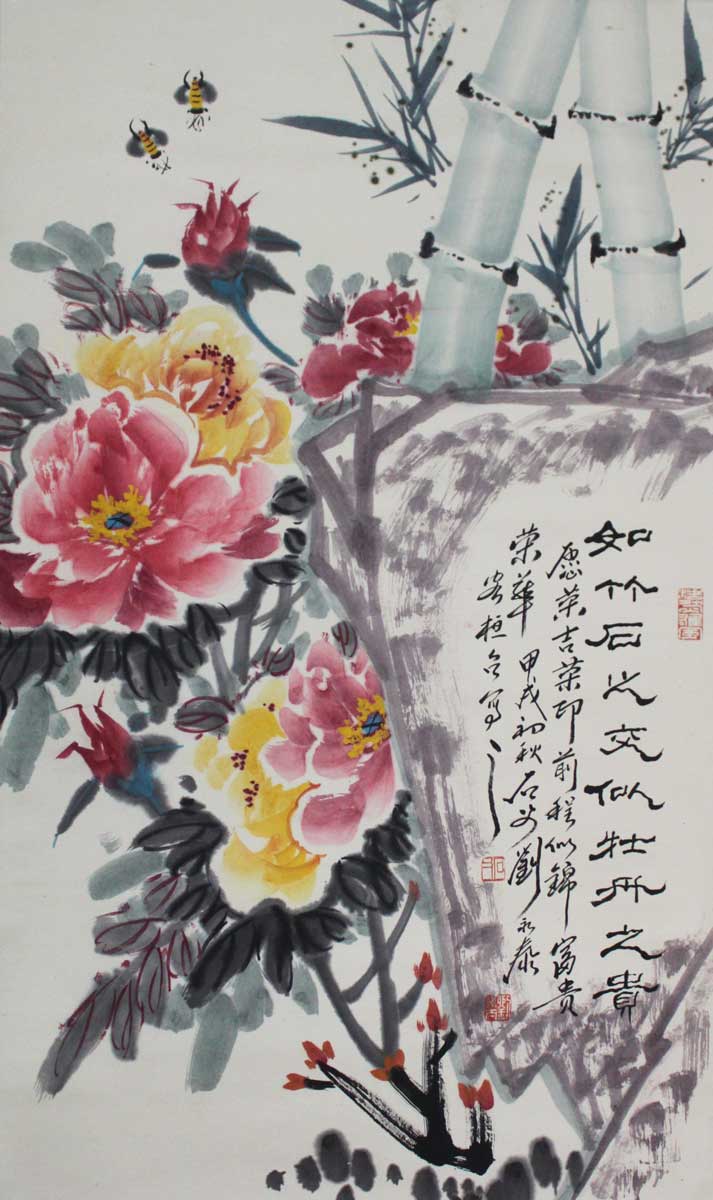 如竹石之交似牡丹之貴
愿荣吉荣印前程似錦富贵
荣華甲戌初秋石父劉永泰
客桓台写之